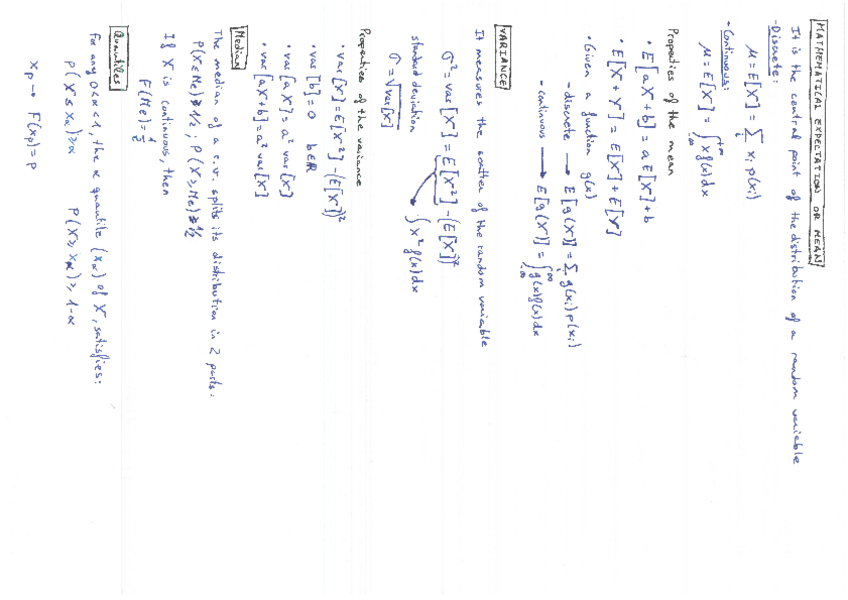 MATHEMATICAL EXPECTATION OR MEAN
It is the central point of the distribution of a random variable
- Discrete:
μ = E[X] = ∑ᵢ xᵢ p(xᵢ)
- Continuous:
μ = E[X] = ∫_{-∞}^{+∞} x f(x) dx
Properties of the mean
• E[aX + b] = a E[X] + b
• E[X + Y] = E[X] + E[Y]
• Given a function g(x)
- discrete → E[g(X)] = ∑ᵢ g(xᵢ) p(xᵢ)
- continuous → E[g(X)] = ∫_{-∞}^{∞} g(x) f(x) dx
VARIANCE
It measures the scatter of the random variable
σ² = var[X] = E[X²] - (E[X])²
∫ x² f(x) dx
standard deviation
σ = √var[X]
Properties of the variance
• var[X] = E[X²] - (E[X])²
• var[b] = 0 b∈ℝ
• var[aX] = a² var[X]
• var[aX + b] = a² var[X]
Median
The median of a r.v. splits its distribution in 2 parts:
P(X ≤ Me) ≥ 1/2 ; P(X ≥ Me) ≥ 1/2
If X is continuous, then
F(Me) = 1/2
Quantiles
For any 0 < α < 1, the α quantile (xα) of X, satisfies:
P(X ≤ xα) ≥ α P(X ≥ xα) ≥ 1 - α
xp → F(xp) = p